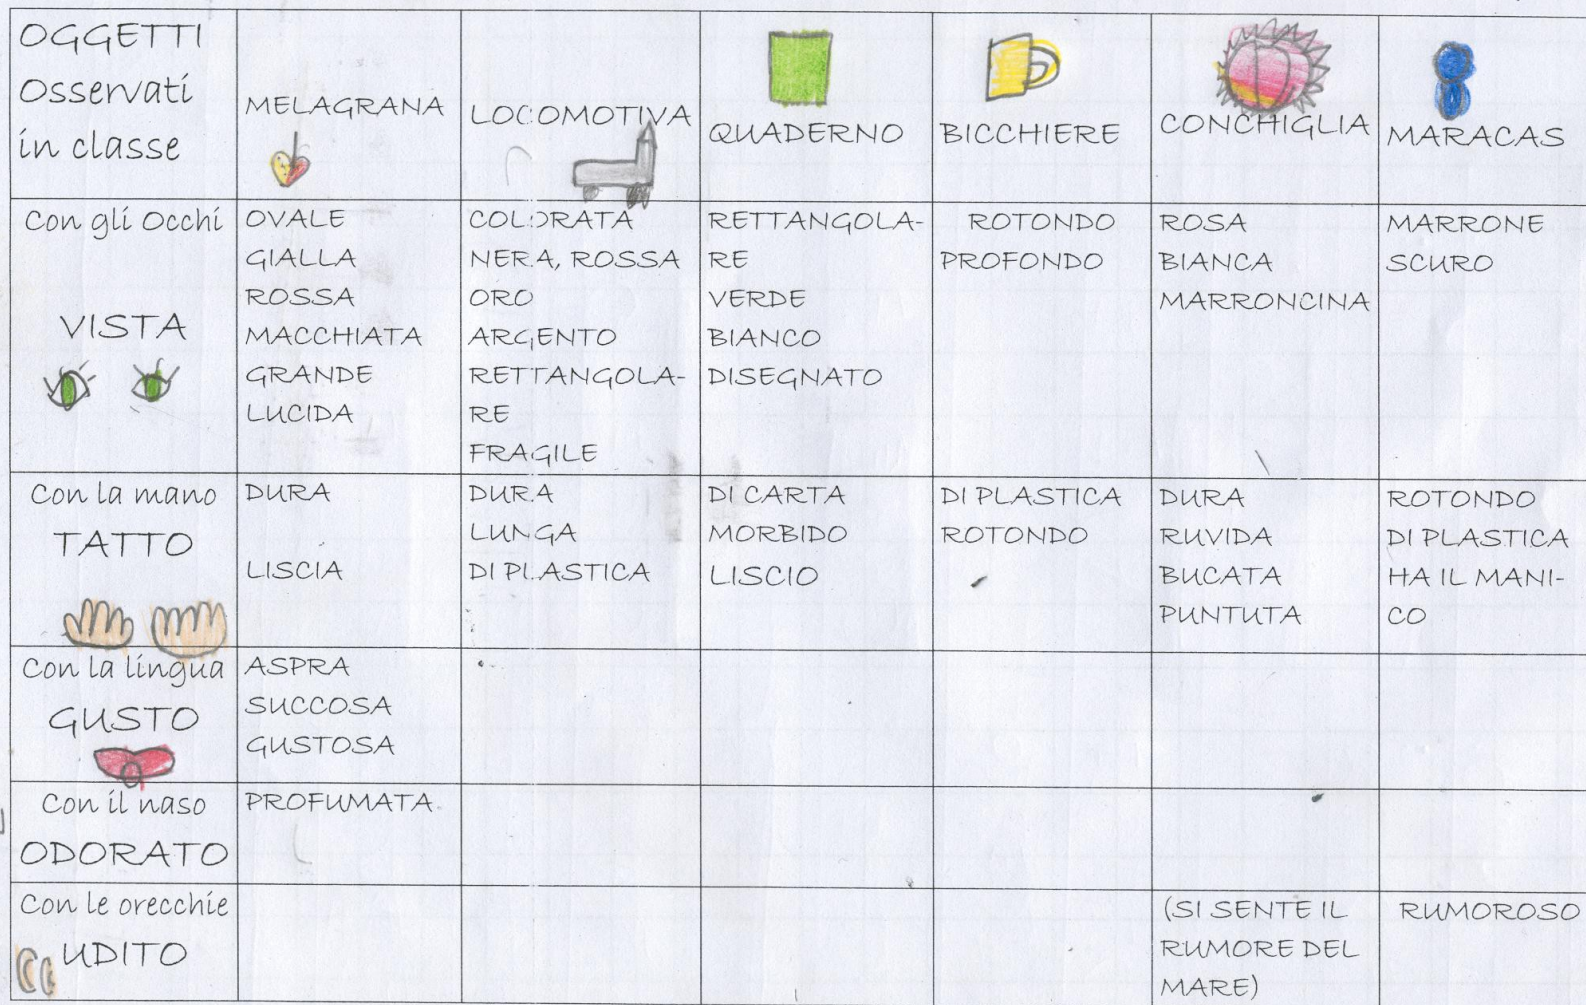 OGGETTI
Osservati
in classe
MELAGRANA
LOCOMOTIVA
QUADERNO
BICCHIERE
CONCHIGLIA
MARACAS
Con gli Occhi
VISTA
OVALE
GIALLA
ROSSA
MACCHIATA
GRANDE
LUCIDA
COLORATA
NERA, ROSSA
ORO
ARGENTO
RETTANGOLA-
RE
FRAGILE
RETTANGOLA-
RE
VERDE
BIANCO
DISEGNATO
ROTONDO
PROFONDO
ROSA
BIANCA
MARRONCINA
MARRONE
SCURO
Con la mano
TATTO
DURA
LISCIA
DURA
LUNGA
DI PLASTICA
DI CARTA
MORBIDO
LISCIO
DI PLASTICA
ROTONDO
DURA
RUVIDA
BUCATA
PUNTUTA
ROTONDO
DI PLASTICA
HA IL MANI-
CO
Con la lingua
GUSTO
ASPRA
SUCCOSA
GUSTOSA
Con il naso
ODORATO
PROFUMATA
Con le orecchie
UDITO
(SI SENTE IL
RUMORE DEL
MARE)
RUMOROSO